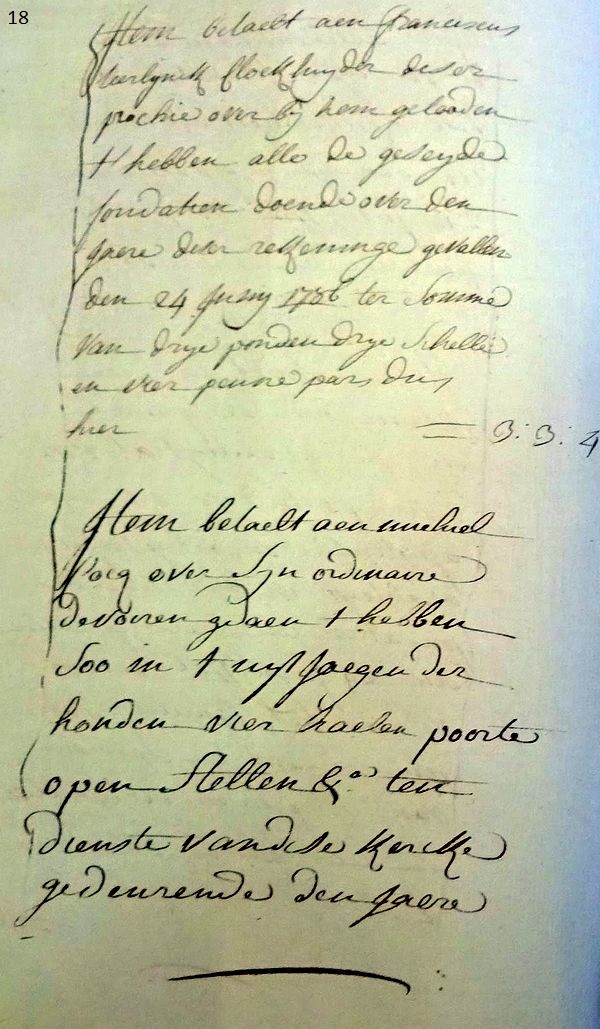 18
Item betaelt aen franciscus
teerlynck clockluyder deser
prochie over bij hem geluyden
t'hebben alle de geseyde
fondatien doende over den
jaere deser rekeninge gevallen
den 24 Juny 1756 ter somme
van drye ponden drye schelle
en vier penne pars dus
hier = 3: 3: 4
Item betaelt aen michiel
over Syn ordinaire
devoiren gedaen t hebben
Soo in t uytjaegen der
honden vier haelen poorte
open stellen &a ten
dienste vandese kercke
gedeurende den jaere